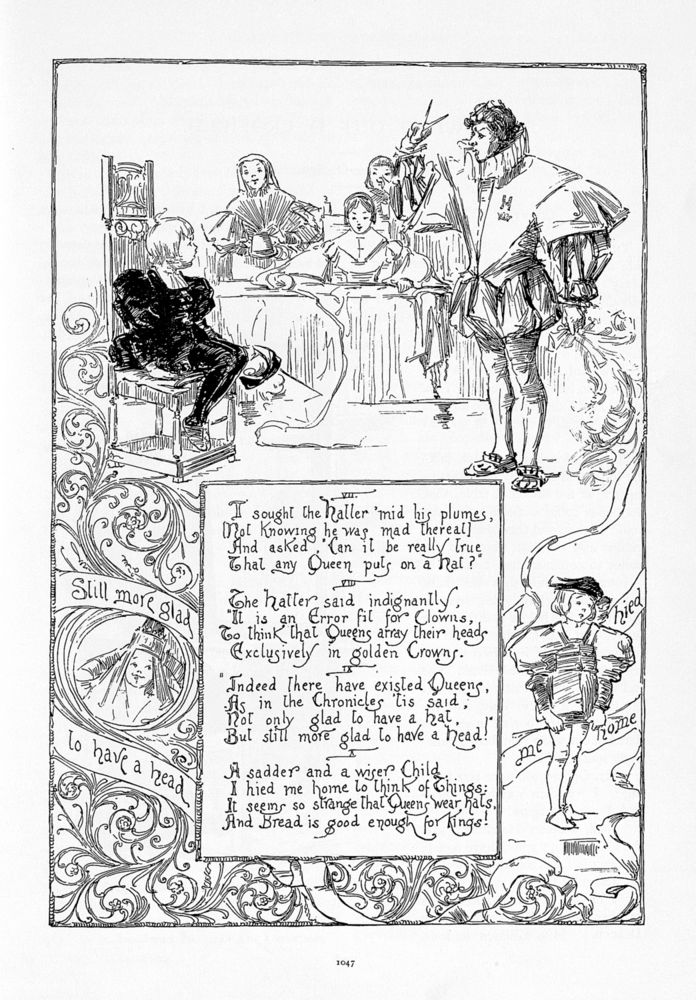 VII.
I sought the hatter 'mid his plumes,
[Not knowing he was mad thereat]
And asked, "Can it be really true
That any Queen puts on a hat?"
VIII
The hatter said indignantly,
"It is an Error fit for Clowns,
To think that Queens array their heads
Exclusively in golden Crowns.
IX
"Indeed there have existed Queens,
As in the Chronicles 'tis said,
Not only glad to have a hat,
But still more glad to have a head!"
X
A sadder and a wiser Child
I hied me home to think of Things:
It seems so strange that Queens wear hats,
And Bread is good enough for Kings!
Still more glad
to have a head
I hied
me home
H
1047